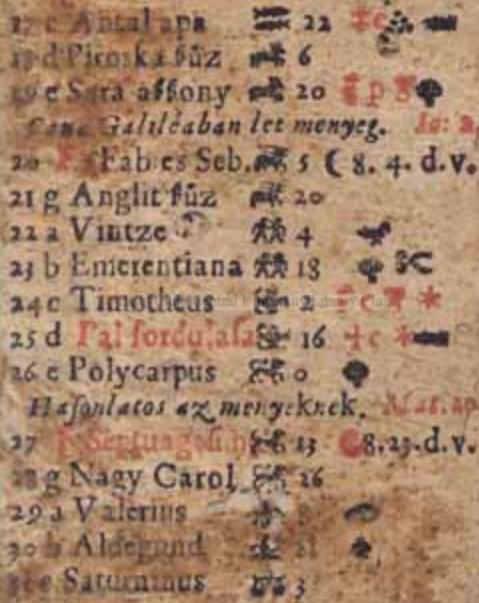 17 c Antal apa 22
18 d Piroska ſűz 6
19 e Sara aſſony 20
Cana Galiléaban let menyeg. Io: 2.
20 F Fab es Seb. 5 ( 8. 4. d.v.
21 g Anglit ſűz 20
22 a Vintze 4
23 b Emerentiana 18
24 c Timotheus 2
25 d Pal fordulaſa 16
26 e Polycarpus 0
Haſonlatos az menyeknek. Mat. 20
27 F Septuageſi 13 8.23.d.v.
28 g Nagy Carol 26
29 a Valerius
30 b Aldegund 21
31 c Saturninus 3